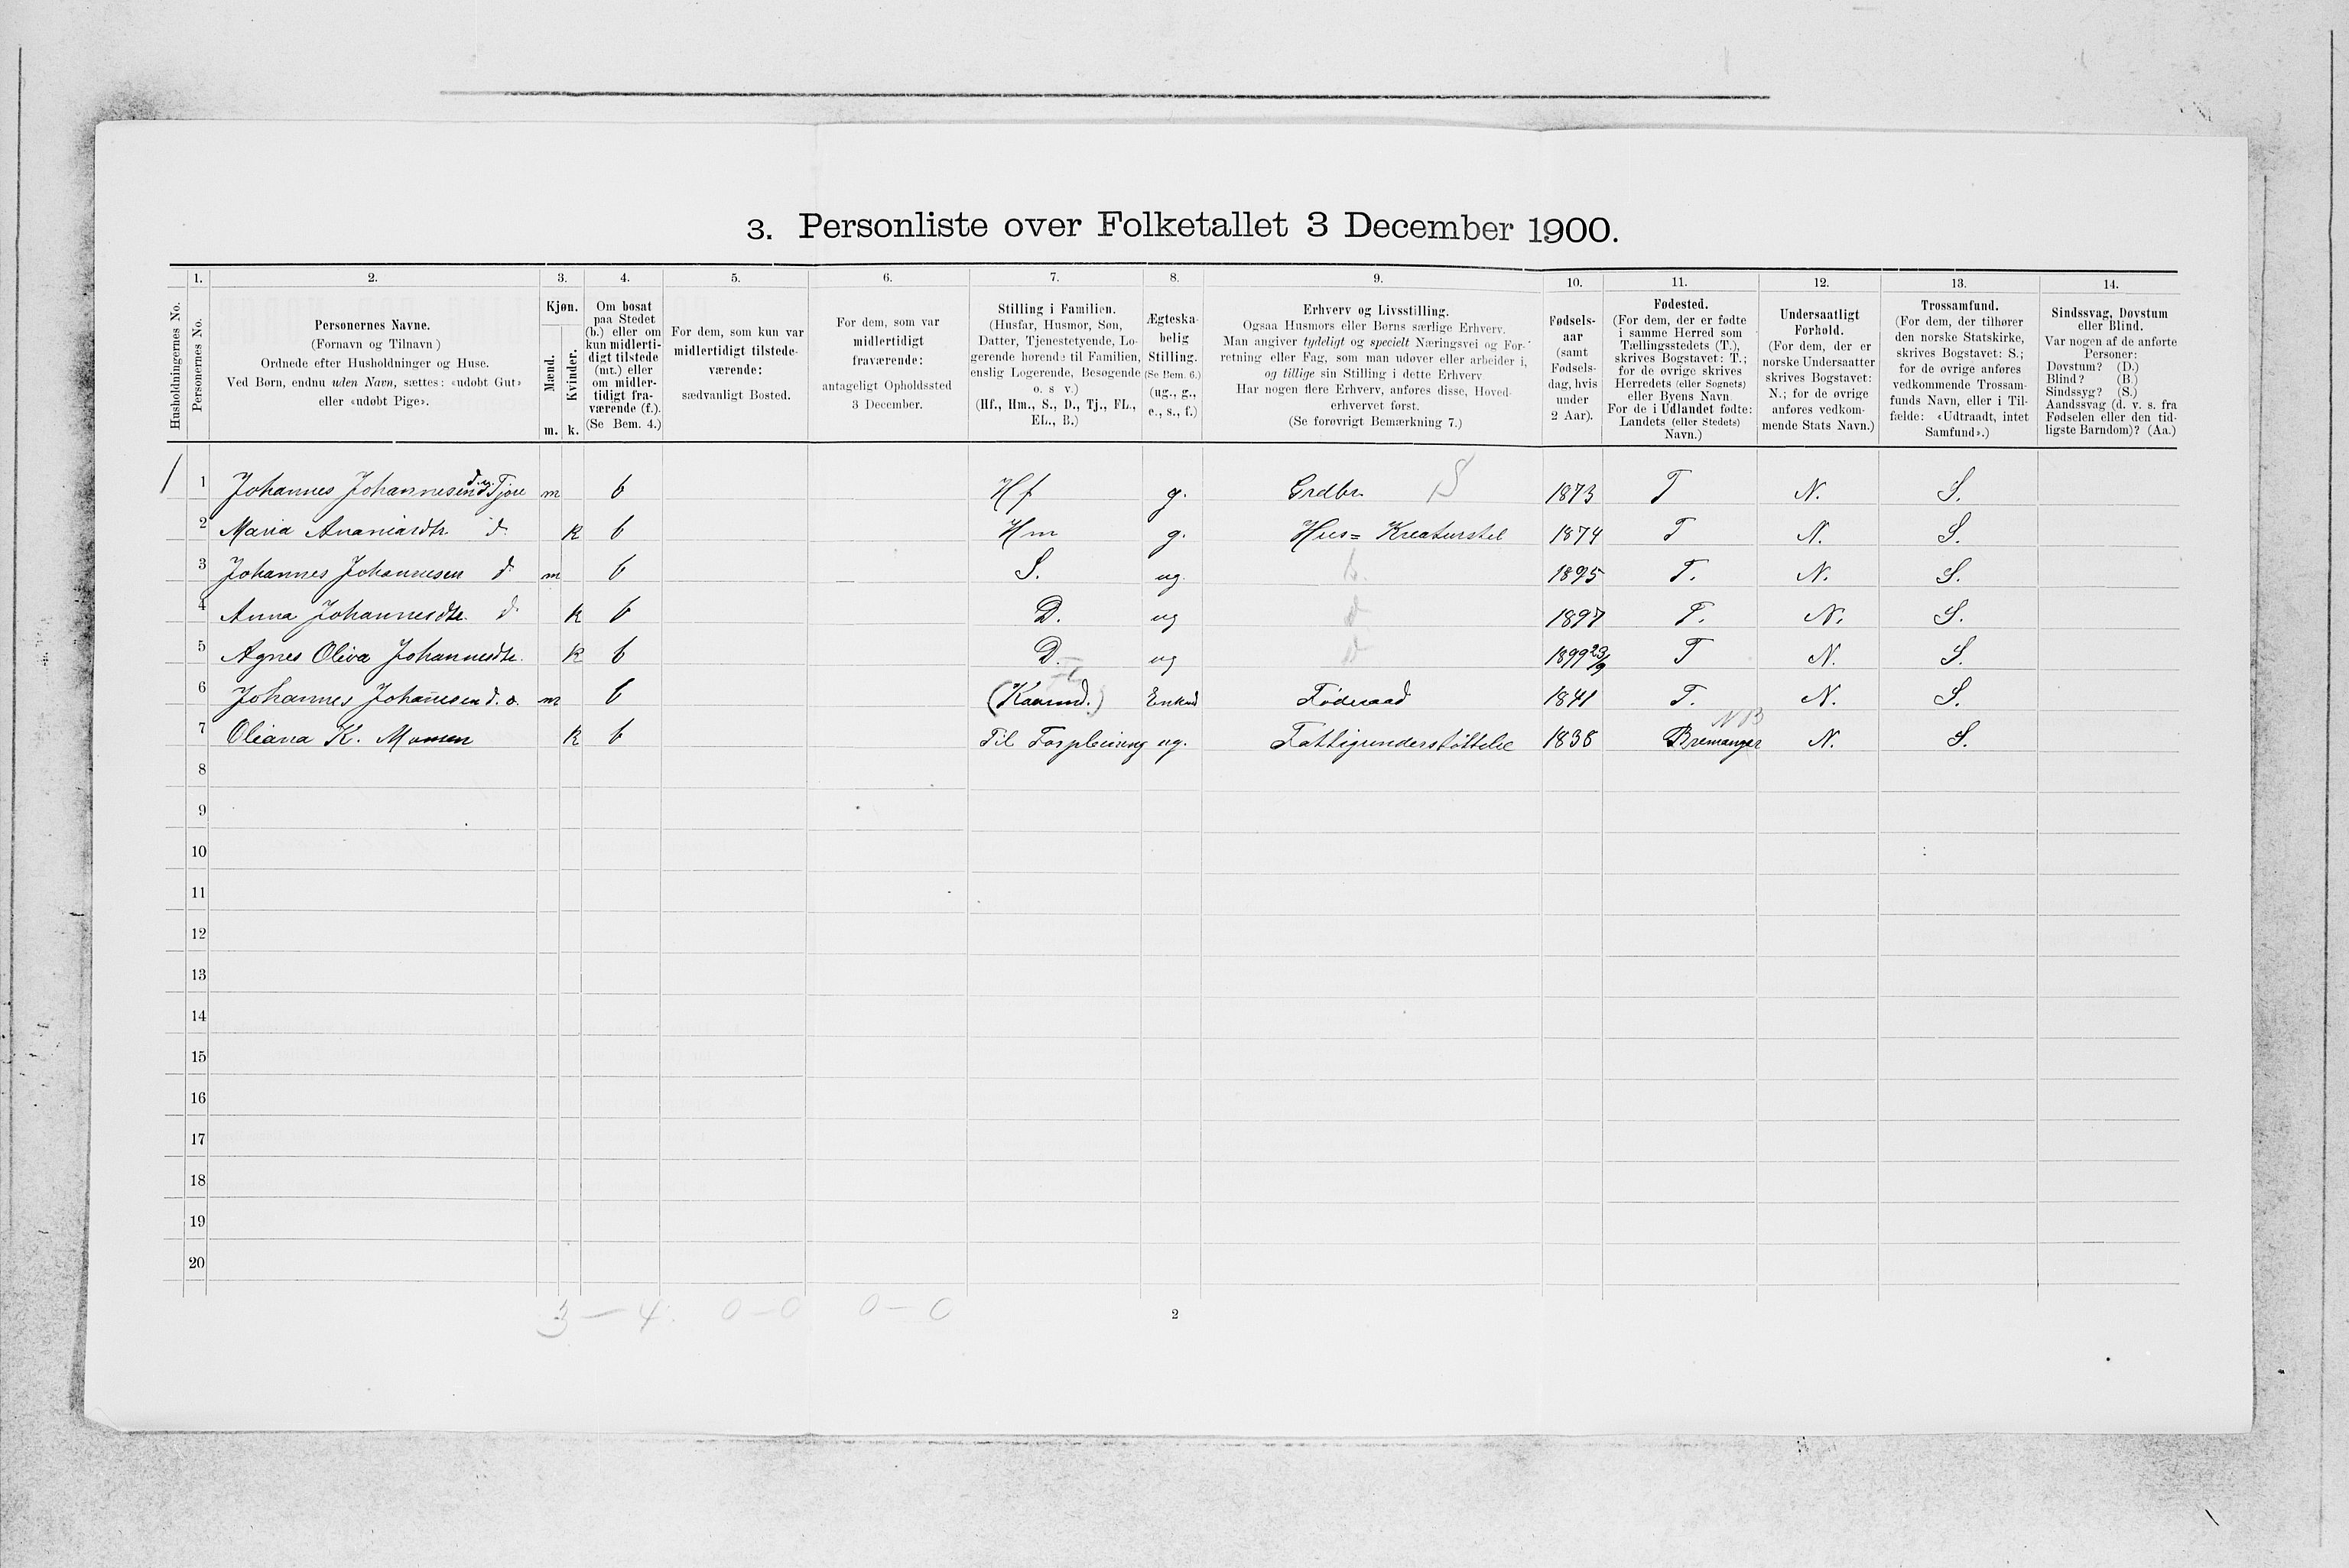 3. Personliste over Folketallet 3 December 1900.
1. 2. 3. 4. 5. 6. 7. 8. 9. 10. 11. 12. 13. 14.
Husholdningernes No.
Personernes No.
Personernes Navne.
(Fornavn og Tilnavn)
Ordnede efter Husholdninger og Huse.
Ved Børn, endnu uden Navn, sættes: «udøbt Gut»
eller «udøbt Pige».
Kjøn.
Mænd.
Kvinder.
m. k.
Om bosat
paa Stedet
(b.) eller om
kun midlerti-
digt tilstede
(mt.) eller
om midler-
tidigt fra-
værende (f.).
(Se Bem. 4.)
For dem, som kun var
midlertidigt tilstede-
værende:
sædvanligt Bosted.
For dem, som var
midlertidigt
fraværende:
antageligt Opholdssted
3 December.
Stilling i Familien.
(Husfar, Husmor, Søn,
Datter, Tjenestetyende, Lo-
gerende hørende til Familien,
enslig Logerende, Besøgende
o. s v.)
(Hf., Hm., S., D., Tj., FL.,
EL., B.)
Ægteska-
belig
Stilling.
(Se Bem. 6.)
(ug., g.,
e., s., f.)
Erhverv og Livsstilling.
Ogsaa Husmors eller Børns særlige Erhverv.
Man angiver tydeligt og specielt Næringsvei og For-
retning eller Fag, som man udøver eller arbeider i,
og tillige sin Stilling i dette Erhverv
Har nogen flere Erhverv, anføres disse, Hoved-
erhvervet først.
(Se forøvrigt Bemærkning 7.)
Fødsels-
aar
(samt
Fødsels-
dag, hvis
under
2 Aar).
Fødested.
(For dem, der er fødte
i samme Herred som
Tællingsstedets (T.),
skrives Bogstavet: T.;
for de øvrige skrives
Herredets (eller Sognets)
eller Byens Navn.
For de i Udlandet fødte:
Landets (eller Stedets)
Navn.)
Undersaatligt
Forhold.
(For dem, der er
norske Undersaatter
skrives Bogstavet:
N.; for de øvrige
anføres vedkom-
mende Stats Navn.)
Trossamfund.
(For dem, der tilhører
den norske Statskirke,
skrives Bogstavet: S.;
for de øvrige anføres
vedkommende Trossam-
funds Navn, eller i Til-
fælde: «Udtraadt, intet
Samfund».)
Sindssvag, Døvstum
eller Blind.
Var nogen af de anførte
Personer:
Døvstum? (D.)
Blind? (B.)
Sindssyg? (S.)
Aandssvag (d. v. s. fra
Fødselen eller den tid-
ligste Barndom)? (Aa.)
1 Johannes Johannesen d.y. Tjore m b Hf g. Grdbr. S 1873 T N. S.
2 Maria Ananiasdtr d k b Hm g. Hus= Kreaturstel 1874 T N. S.
3 Johannes Johannesen d m b S. ug. 1895 T. N. S.
4 Anna Johannesdtr. d k b D. ug 1897 T. N. S.
5 Agnes Oliva Johannesdtr. k b D. ug 1899 23/9 T N. S.
6 Johannes Johannesen d. æ. m b (Kaarmd.) Enkmd Føderaad 1841 T. N. S.
7 Oliana K. Monsen k b Til Forpleining ug. Fattigunderstøttelse 1838 Bremanger N. S.
8
9
10
11
12
13
14
15
16
17
18
19
20
3 – 4. 0 – 0 0 – 0
2